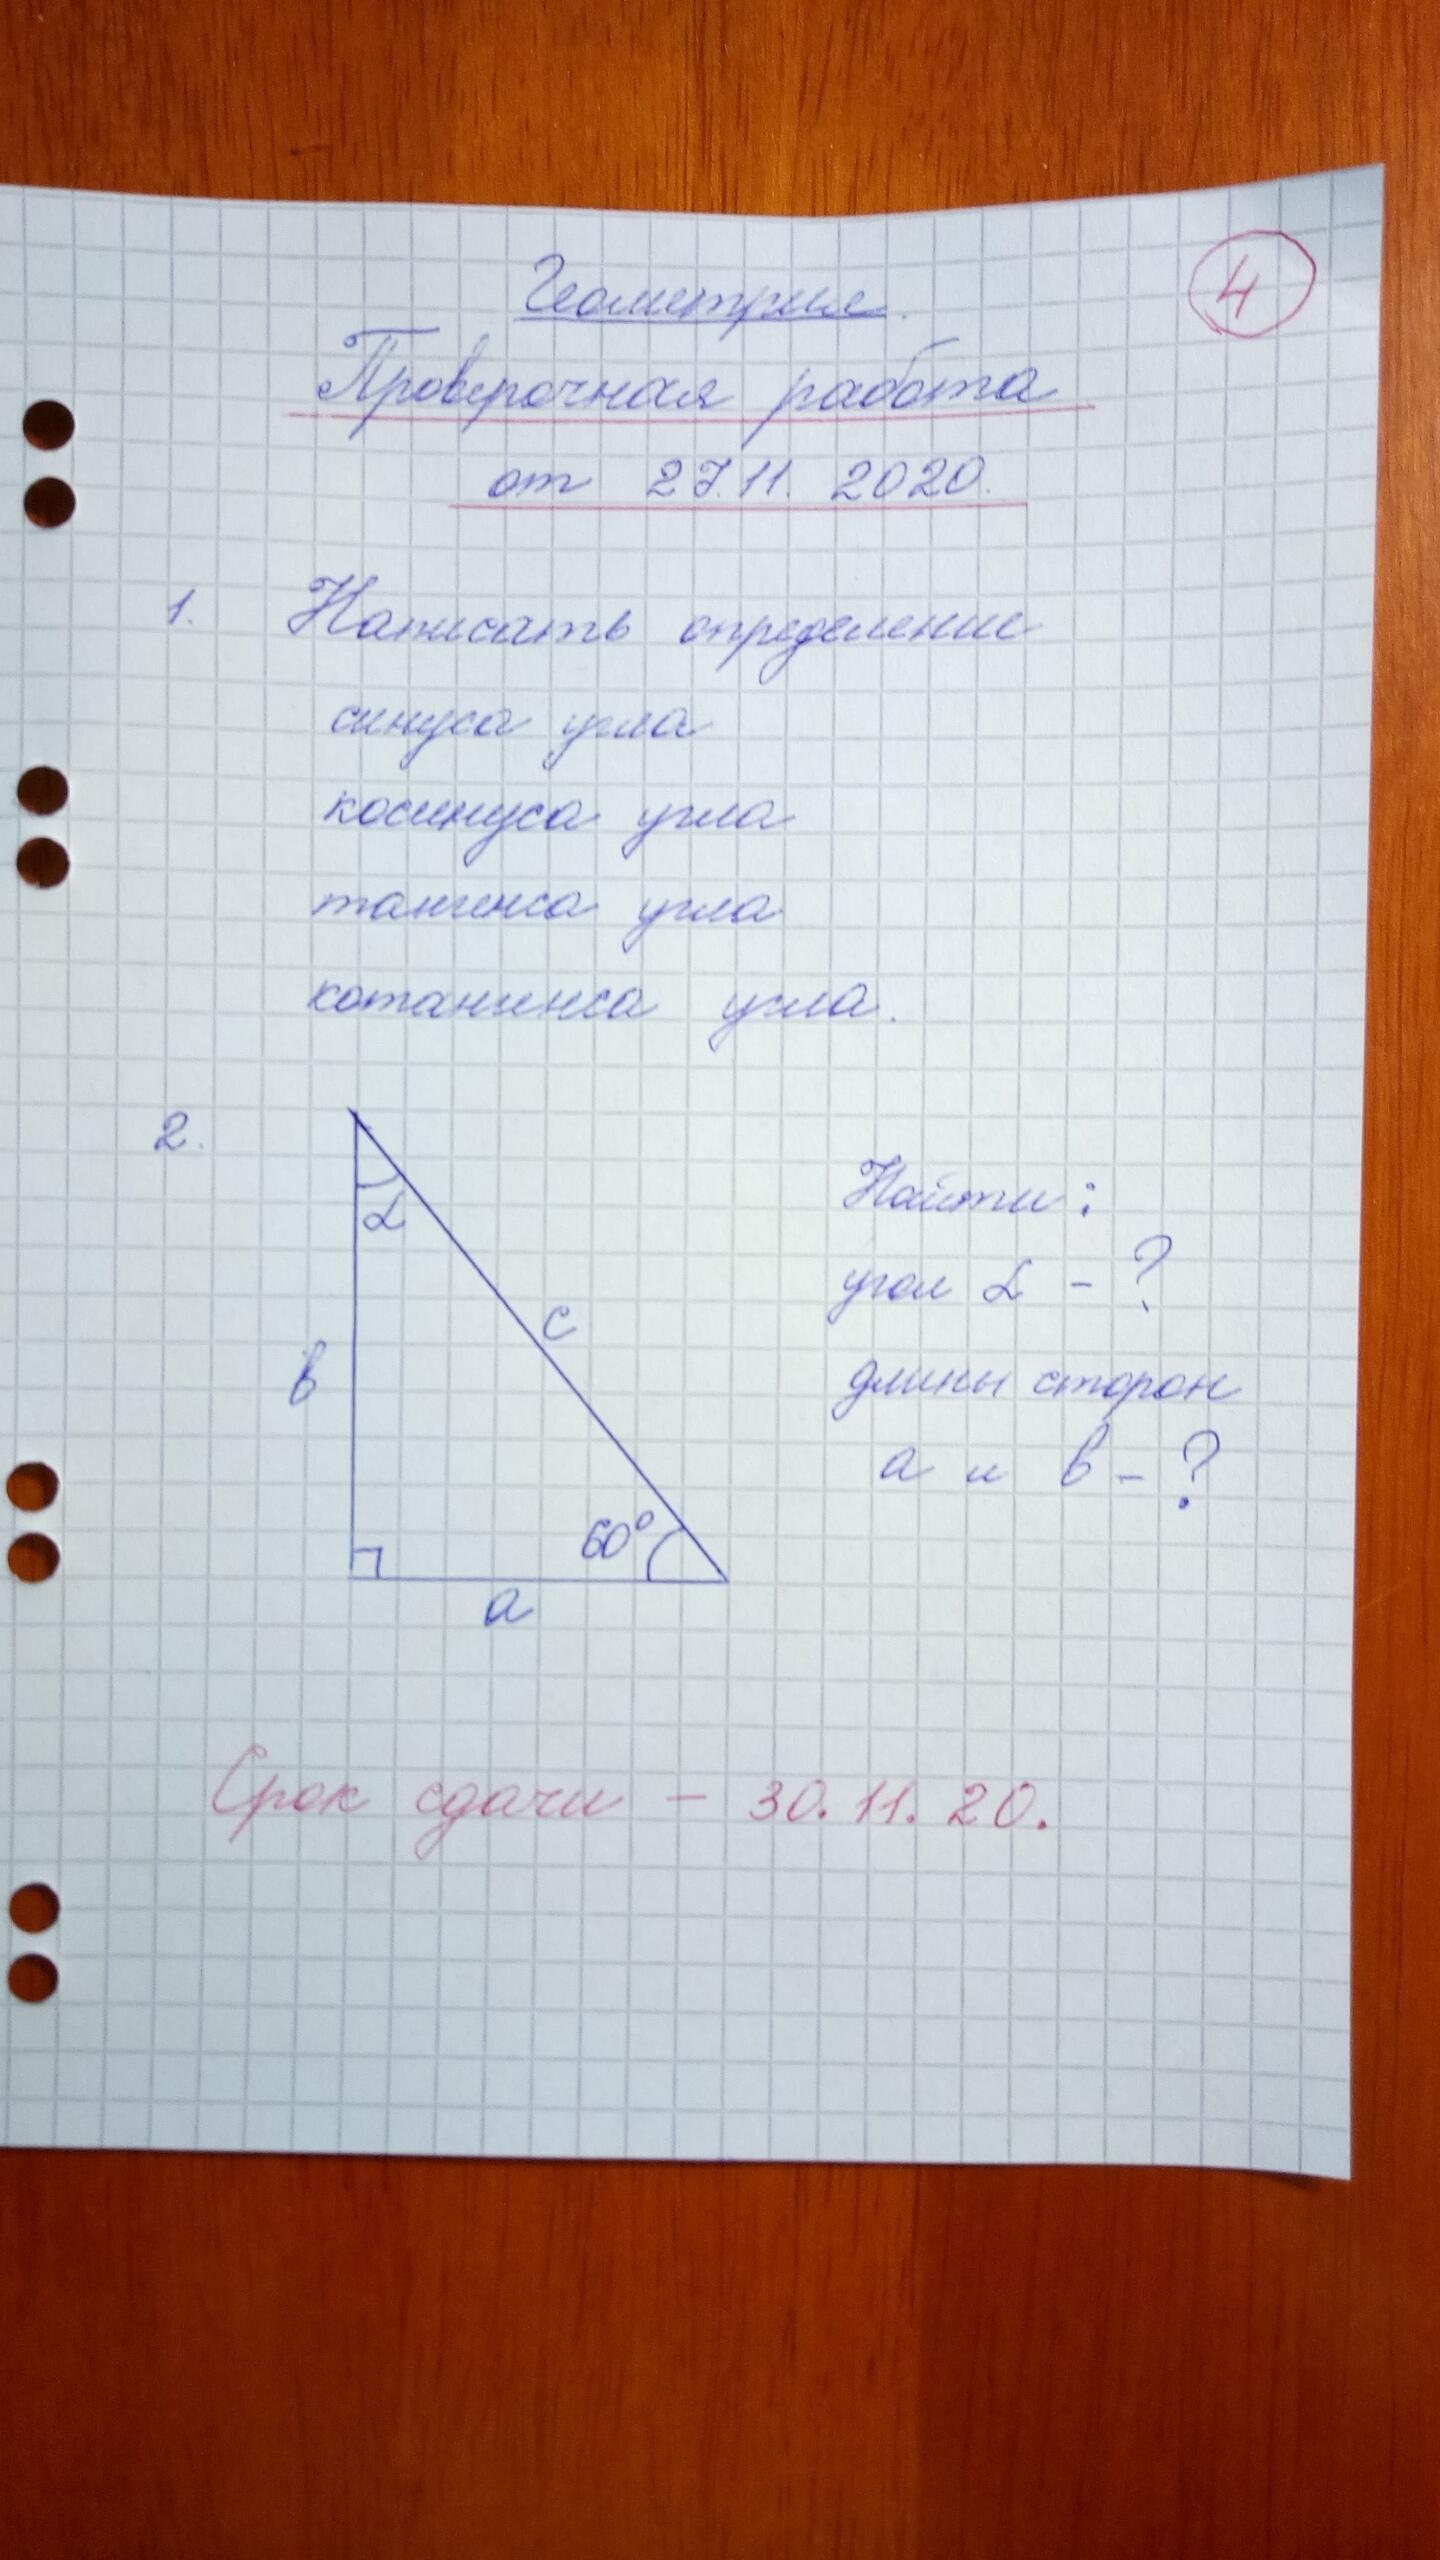 4
Геометрия.
Проверочная работа
от 27.11.2020.
1. Написать определение
синуса угла
косинуса угла
тангенса угла
котангенса угла.
2.
α
c
в
60°
a
Найти:
угол α - ?
длины сторон
a и в - ?
Срок сдачи - 30.11.20.